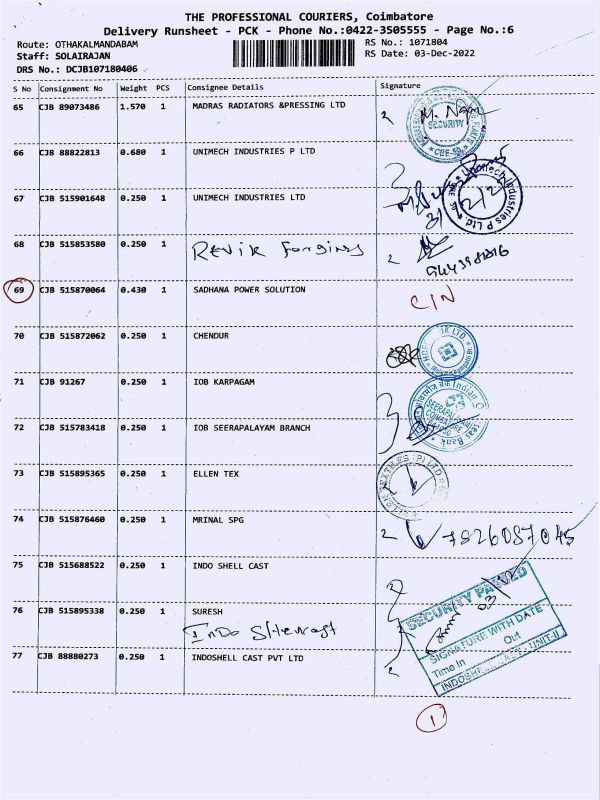 THE PROFESSIONAL COURIERS, Coimbatore
Delivery Runsheet - PCK - Phone No.:0422-3505555 - Page No.:6
Route: OTHAKALMANDABAM
RS No.: 1071804
Staff: SOLAIRAJAN
RS Date: 03-Dec-2022
DRS No.: DCJB107180406
S No Consignment No Weight PCS Consignee Details Signature
65 CJB 89073486 1.570 1 MADRAS RADIATORS &PRESSING LTD
SECURITY
CBE-50
66 CJB 88822813 0.680 1 UNIMECH INDUSTRIES P LTD
67 CJB 515901648 0.250 1 UNIMECH INDUSTRIES LTD
Unimech Industries P Ltd.
68 CJB 515853580 0.250 1 Revik Forgings
69 CJB 515870064 0.430 1 SADHANA POWER SOLUTION
C/N
70 CJB 515872062 0.250 1 CHENDUR
71 CJB 91267 0.250 1 IOB KARPAGAM
72 CJB 515783418 0.250 1 IOB SEERAPALAYAM BRANCH
73 CJB 515895365 0.250 1 ELLEN TEX
74 CJB 515876460 0.250 1 MRINAL SPG
7826087045
75 CJB 515688522 0.250 1 INDO SHELL CAST
76 CJB 515895338 0.250 1 SURESH
Indo Shell cast
SECURITY PASSED
SIGNATURE WITH DATE
Time In Out
77 CJB 88880273 0.250 1 INDOSHELL CAST PVT LTD
1